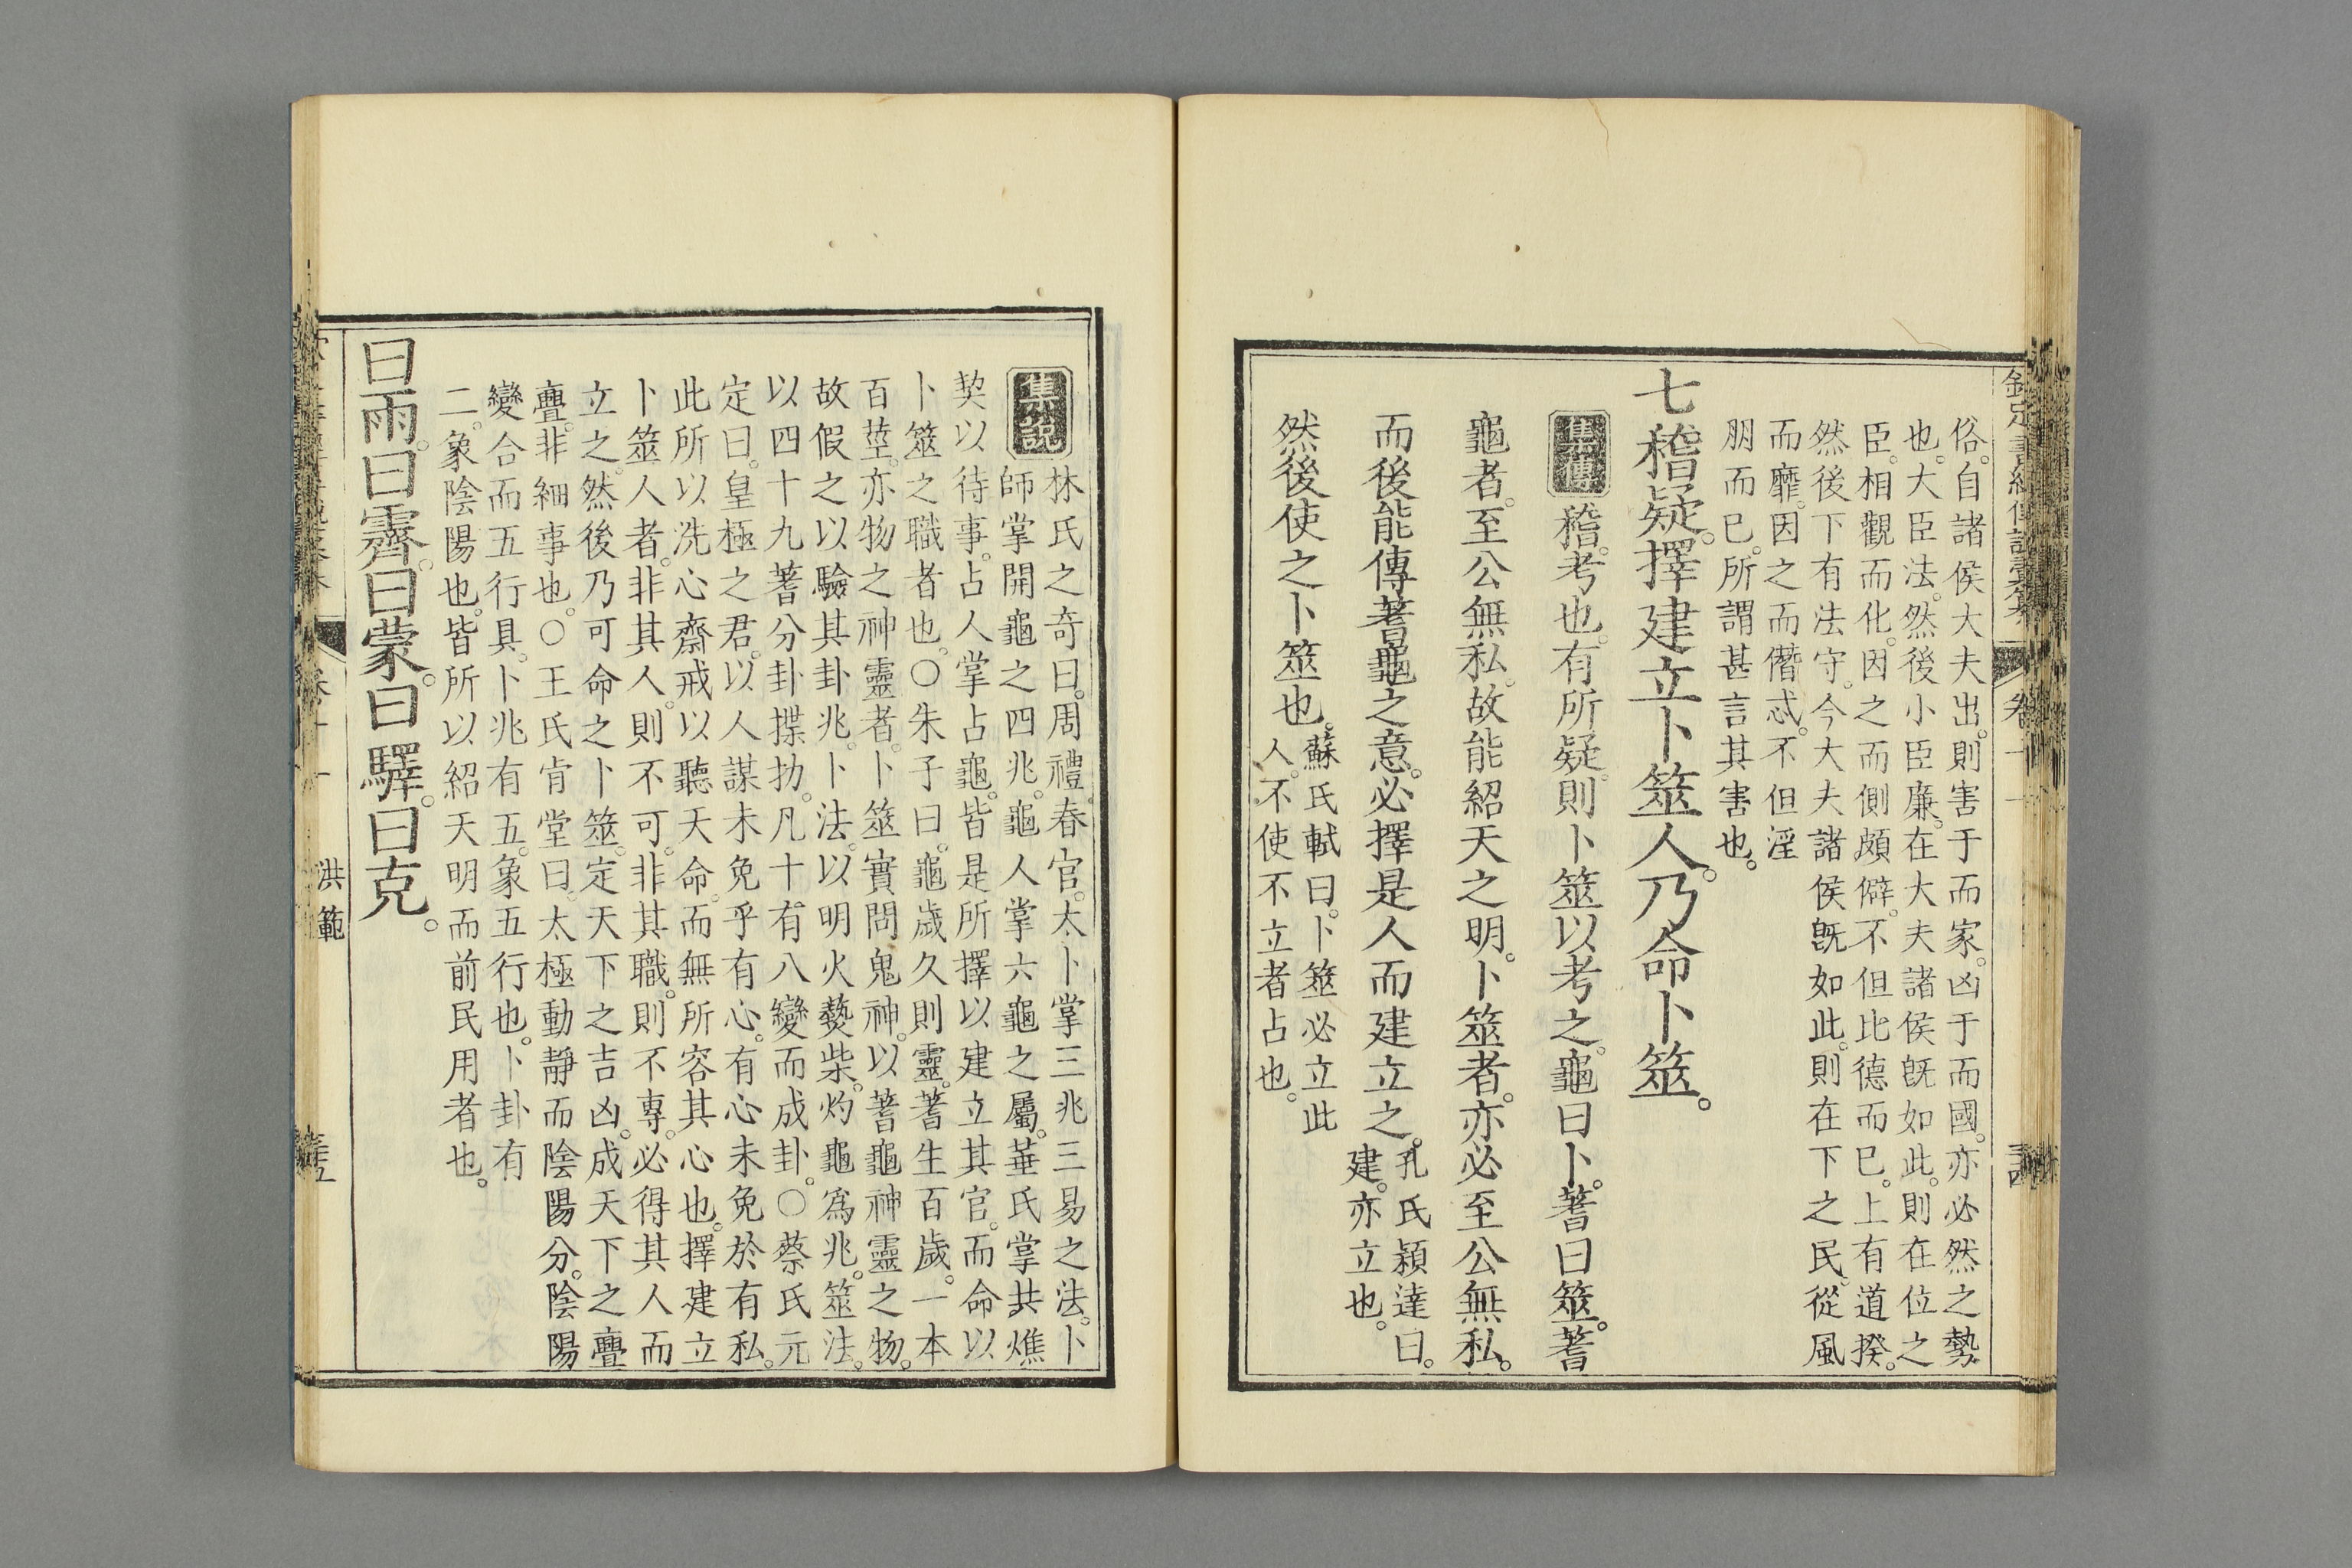 俗。自諸侯大夫出。則害于而家。凶于而國。亦必然之勢
也。大臣法。然後小臣廉。在大夫諸侯旣如此。則在位之
臣。相觀而化。因之而側頗僻。不但比德而已。上有道揆。
然後下有法守。今大夫諸侯旣如此。則在下之民。從風
而靡。因之而僭忒。不但淫
朋而已。所謂甚言其害也。
七稽疑。擇建立卜筮人。乃命卜筮。
集傳 稽。考也。有所疑。則卜筮以考之。龜曰卜。蓍曰筮。蓍
龜者。至公無私。故能紹天之明。卜筮者。亦必至公無私。
而後能傳蓍龜之意。必擇是人而建立之。孔氏穎達曰。
建。亦立也。
然後使之卜筮也。蘇氏軾曰。卜筮必立此
人。不使不立者占也。
集說 林氏之奇曰。周禮。春官。太卜掌三兆三易之法。卜
師掌開龜之四兆。龜人掌六龜之屬。菙氏掌共燋
契以待事。占人掌占龜。皆是所擇以建立其官。而命以
卜筮之職者也。○朱子曰。龜歲久則靈。蓍生百歲。一本
百莖。亦物之神靈者。卜筮實問鬼神。以蓍龜神靈之物。
故假之以驗其卦兆。卜法。以明火爇柴。灼龜爲兆。筮法。
以四十九蓍分卦揲扐。凡十有八變而成卦。○蔡氏元
定曰。皇極之君。以人謀未免乎有心。有心未免於有私。
此所以洗心齋戒以聽天命。而無所容其心也。擇建立
卜筮人者。非其人。則不可。非其職。則不專。必得其人而
立之。然後乃可命之卜筮。定天下之吉凶。成天下之亹
亹。非細事也。○王氏肯堂曰。太極動靜而陰陽分。陰陽
變合而五行具。卜兆有五。象五行也。卜卦有
二。象陰陽也。皆所以紹天明而前民用者也。
曰雨。曰霽。曰蒙。曰驛。曰克。
洪範